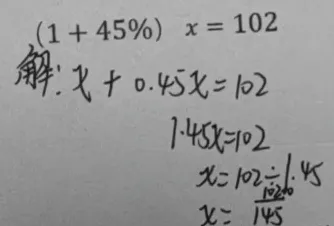 (1 + 45%) x = 102
解: x + 0.45x = 102
1.45x=102
x = 102 ÷ 1.45
x = 10200/145